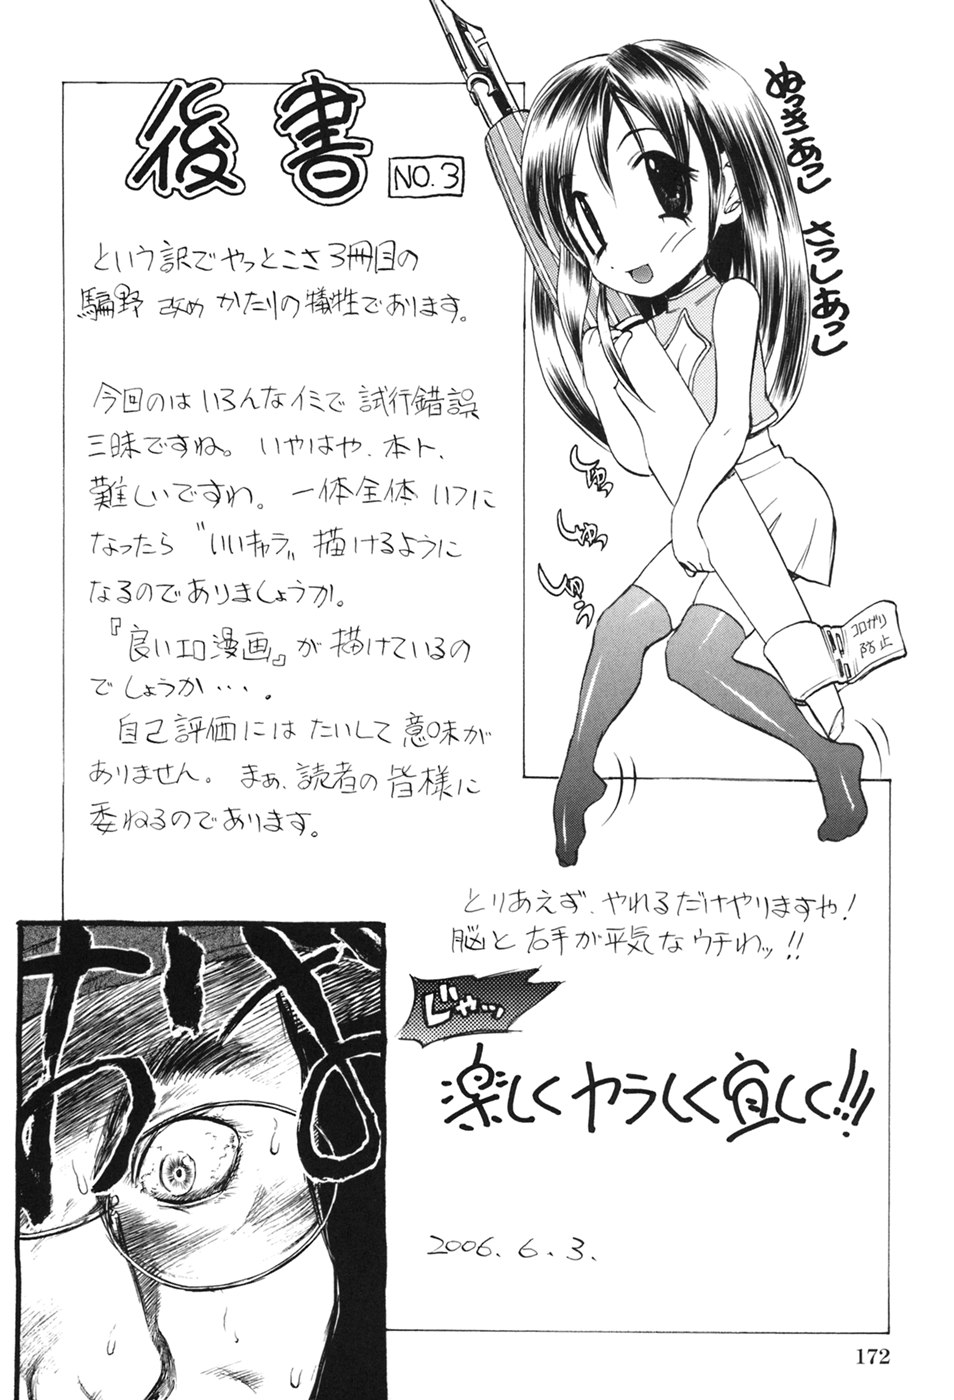 後書 NO.3
という訳でやっとこさ3冊目の
騙野 改め かたりの犠牲であります。
今回のは いろんなイミで 試行錯誤
三昧ですね。いやはや、本ト、
難しいですわ。一体全体 いつに
なったら "いいキャラ" 描けるように
なるのでありましょうか。
『良いエロ漫画』が 描けているの
でしょうか・・・。
自己評価には たいして 意味が
ありません。まぁ、読者の皆様に
委ねるのであります。
ぬっきあっし
さっしあっし
じゅっ
じゅっ
じゅぅ
コロガリ
防止
とりあえず、やれるだけやりますや!
脳と右手が平気なウチわッ!!
じゃっ
楽しくヤラしく宜しく!!!
2006.6.3.
172